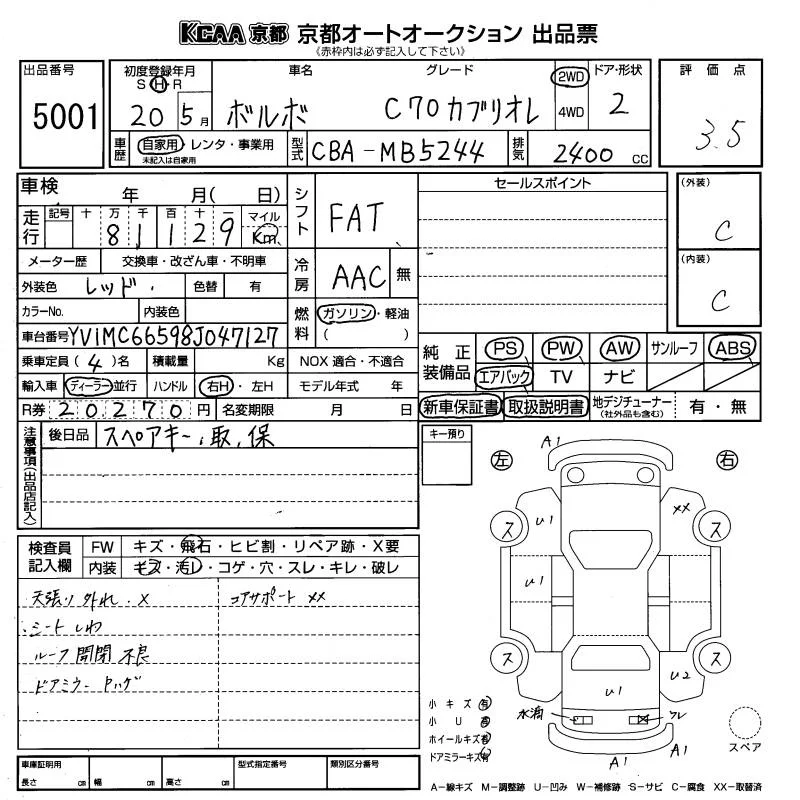 KCAA 京都 京都オートオークション 出品票
《赤枠内は必ず記入して下さい》
出品番号 初度登録年月 車名 グレード 2WD ドア・形状 評価点
S H R
5001 20 5月 ボルボ C70カブリオレ 4WD 2 3.5
車歴 自家用・レンタ・事業用 型式 CBA-MB5244 排気 2400 CC
未記入は自家用
車検 年 月( 日) シフト FAT セールスポイント (外装)
走行 記号 十 万 千 百 十 一 マイル C
8 1 1 2 9 Km
メーター歴 交換車・改ざん車・不明車 冷房 AAC 無 (内装)
外装色 レッド 色替 有 C
カラーNo. 内装色 燃料 ガソリン・軽油
車台番号 YV1MC66598J047127 ( )
乗車定員(4)名 積載量 Kg NOX 適合・不適合 純正装備品 PS PW AW サンルーフ ABS
輸入車 ディーラー 並行 ハンドル 右H・左H モデル年式 年 エアバック TV ナビ
R券 20270円 名変期限 月 日 新車保証書 取扱説明書 地デジチューナー 有・無
(社外品も含む)
注意事項(出品店記入) 後日品 スペアキー、取、保 キー預り
A1
左 右
U1 XX
ス ス
検査員記入欄 FW キズ・飛石・ヒビ割・リペア跡・X要
内装 キズ・汚レ・コゲ・穴・スレ・キレ・破レ
U1
天張り外れ.X コアサポート XX
シートしわ
ルーフ開閉不良 ス ス
ドアミラーPハゲ U2
U1
小キズ 有
小U 有 水滴 ワレ
ホイールキズ 有
ドアミラーキズ 有 A1 A1 スペア
車庫証明用 型式指定番号 類別区分番号
長さ cm 幅 cm 高さ cm
A-線キズ M-調整跡 U-凹み W-補修跡 S-サビ C-腐食 XX-取替済